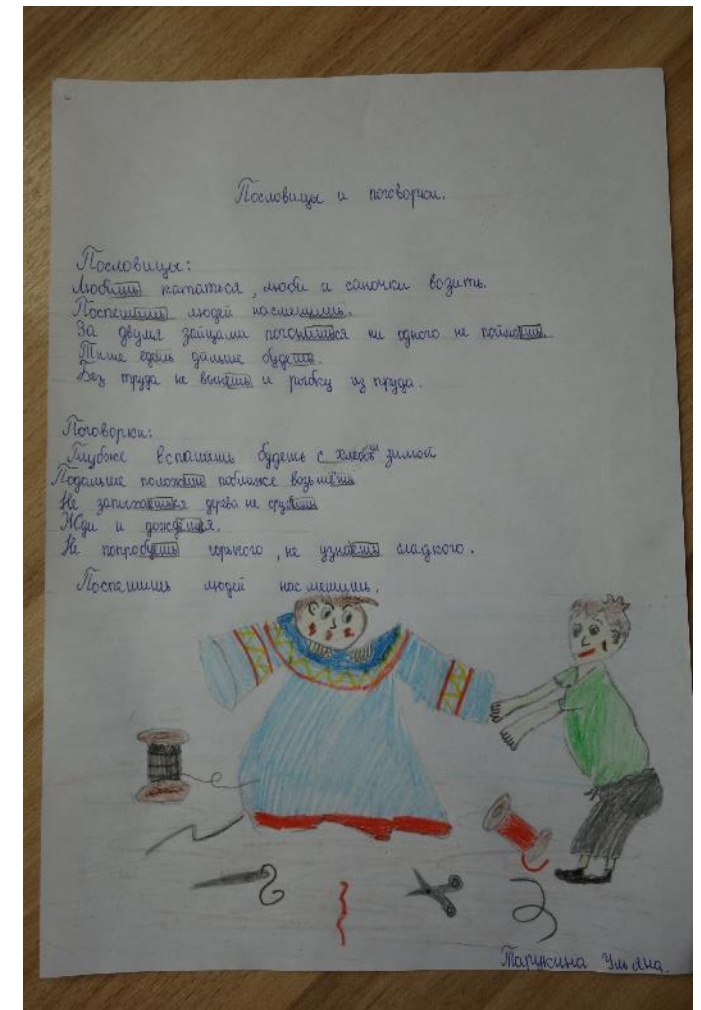 Пословицы и поговорки.
Пословицы:
Любишь кататься, люби и саночки возить.
Поспешишь людей насмешишь.
За двумя зайцами погонишься ни одного не поймаешь.
Тише едешь дальше будешь.
Без труда не вынешь и рыбку из пруда.
Поговорки:
Глубже вспашешь будешь с хлебом зимой
Подальше положишь поближе возьмёшь
Не запыхаешься дерева не срубишь
Жди и дождёшься.
Не попробуешь горького, не узнаешь сладкого.
Поспешишь людей насмешишь.
Ульяна.